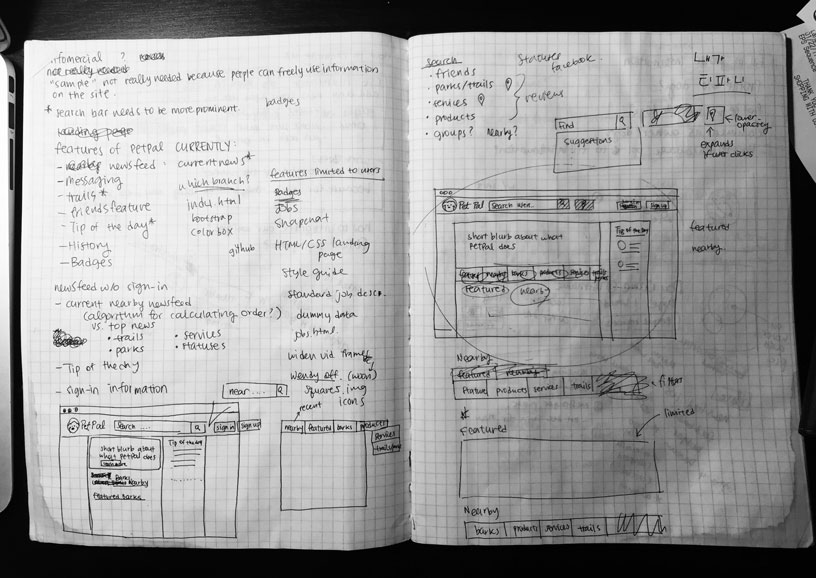 "sample" not really needed because people can freely use information
on the site.
* search bar needs to be more prominent.
badges
landing page
features of PetPal CURRENTLY:
- newsfeed · current news*
- messaging
- trails*
- friends feature
- Tip of the day*
- History
- Badges
which branch?
indy.html
bootstrap
colorbox
github
features limited to users
Badges
Jobs
Snapchat
HTML/CSS landing
page
Style guide
standard job desc.
dummy data
jobs.html
widen vid frame
wendy off. (woon)
squares.img
icons
newsfeed w/o sign-in
- current nearby newsfeed
(algorithm for calculating order?)
vs. top news
• trails
• parks
• services
• statuses
- Tip of the day
- sign-in information
near ....
recent
nearby
featured
barks
products
services
PetPal
Search ....
sign in
sign up
short blurb about
what PetPal does
Tip of the day
nearby
featured barks
Search
• friends
• parks/trails
• services
• products
• groups? nearby?
reviews
Statuses
facebook
Find
suggestions
lower
opacity
expands
if user clicks
PetPal
Search
sign up
short blurb about what
PetPal does
Tip of the day
featured
nearby
barks
products
services
trails
Featured
nearby
featured
nearby..
Nearby
featured
nearby
products
services
trails
filter
limited
Featured
Nearby
barks
products
services
trails